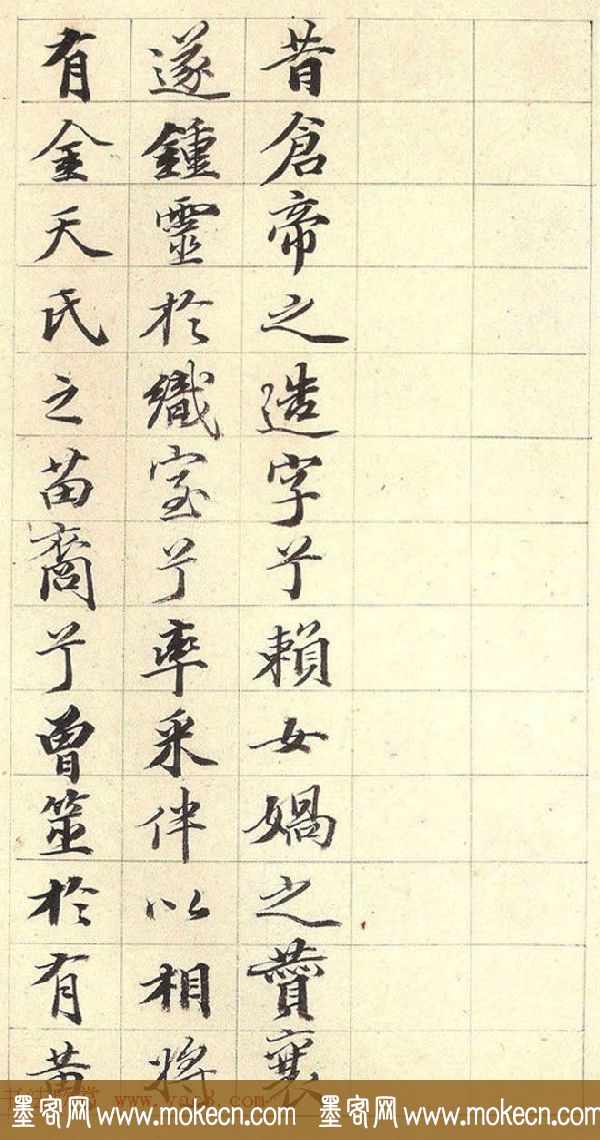 昔倉帝之造字兮賴女媧之贊襄
遂鍾靈於織室兮率采伴以相將
有金天氏之苗裔兮曾筮於有黄
书法欣赏 www.yac8.com
墨客网 www.mokecn.com 墨客网 www.mokecn.com